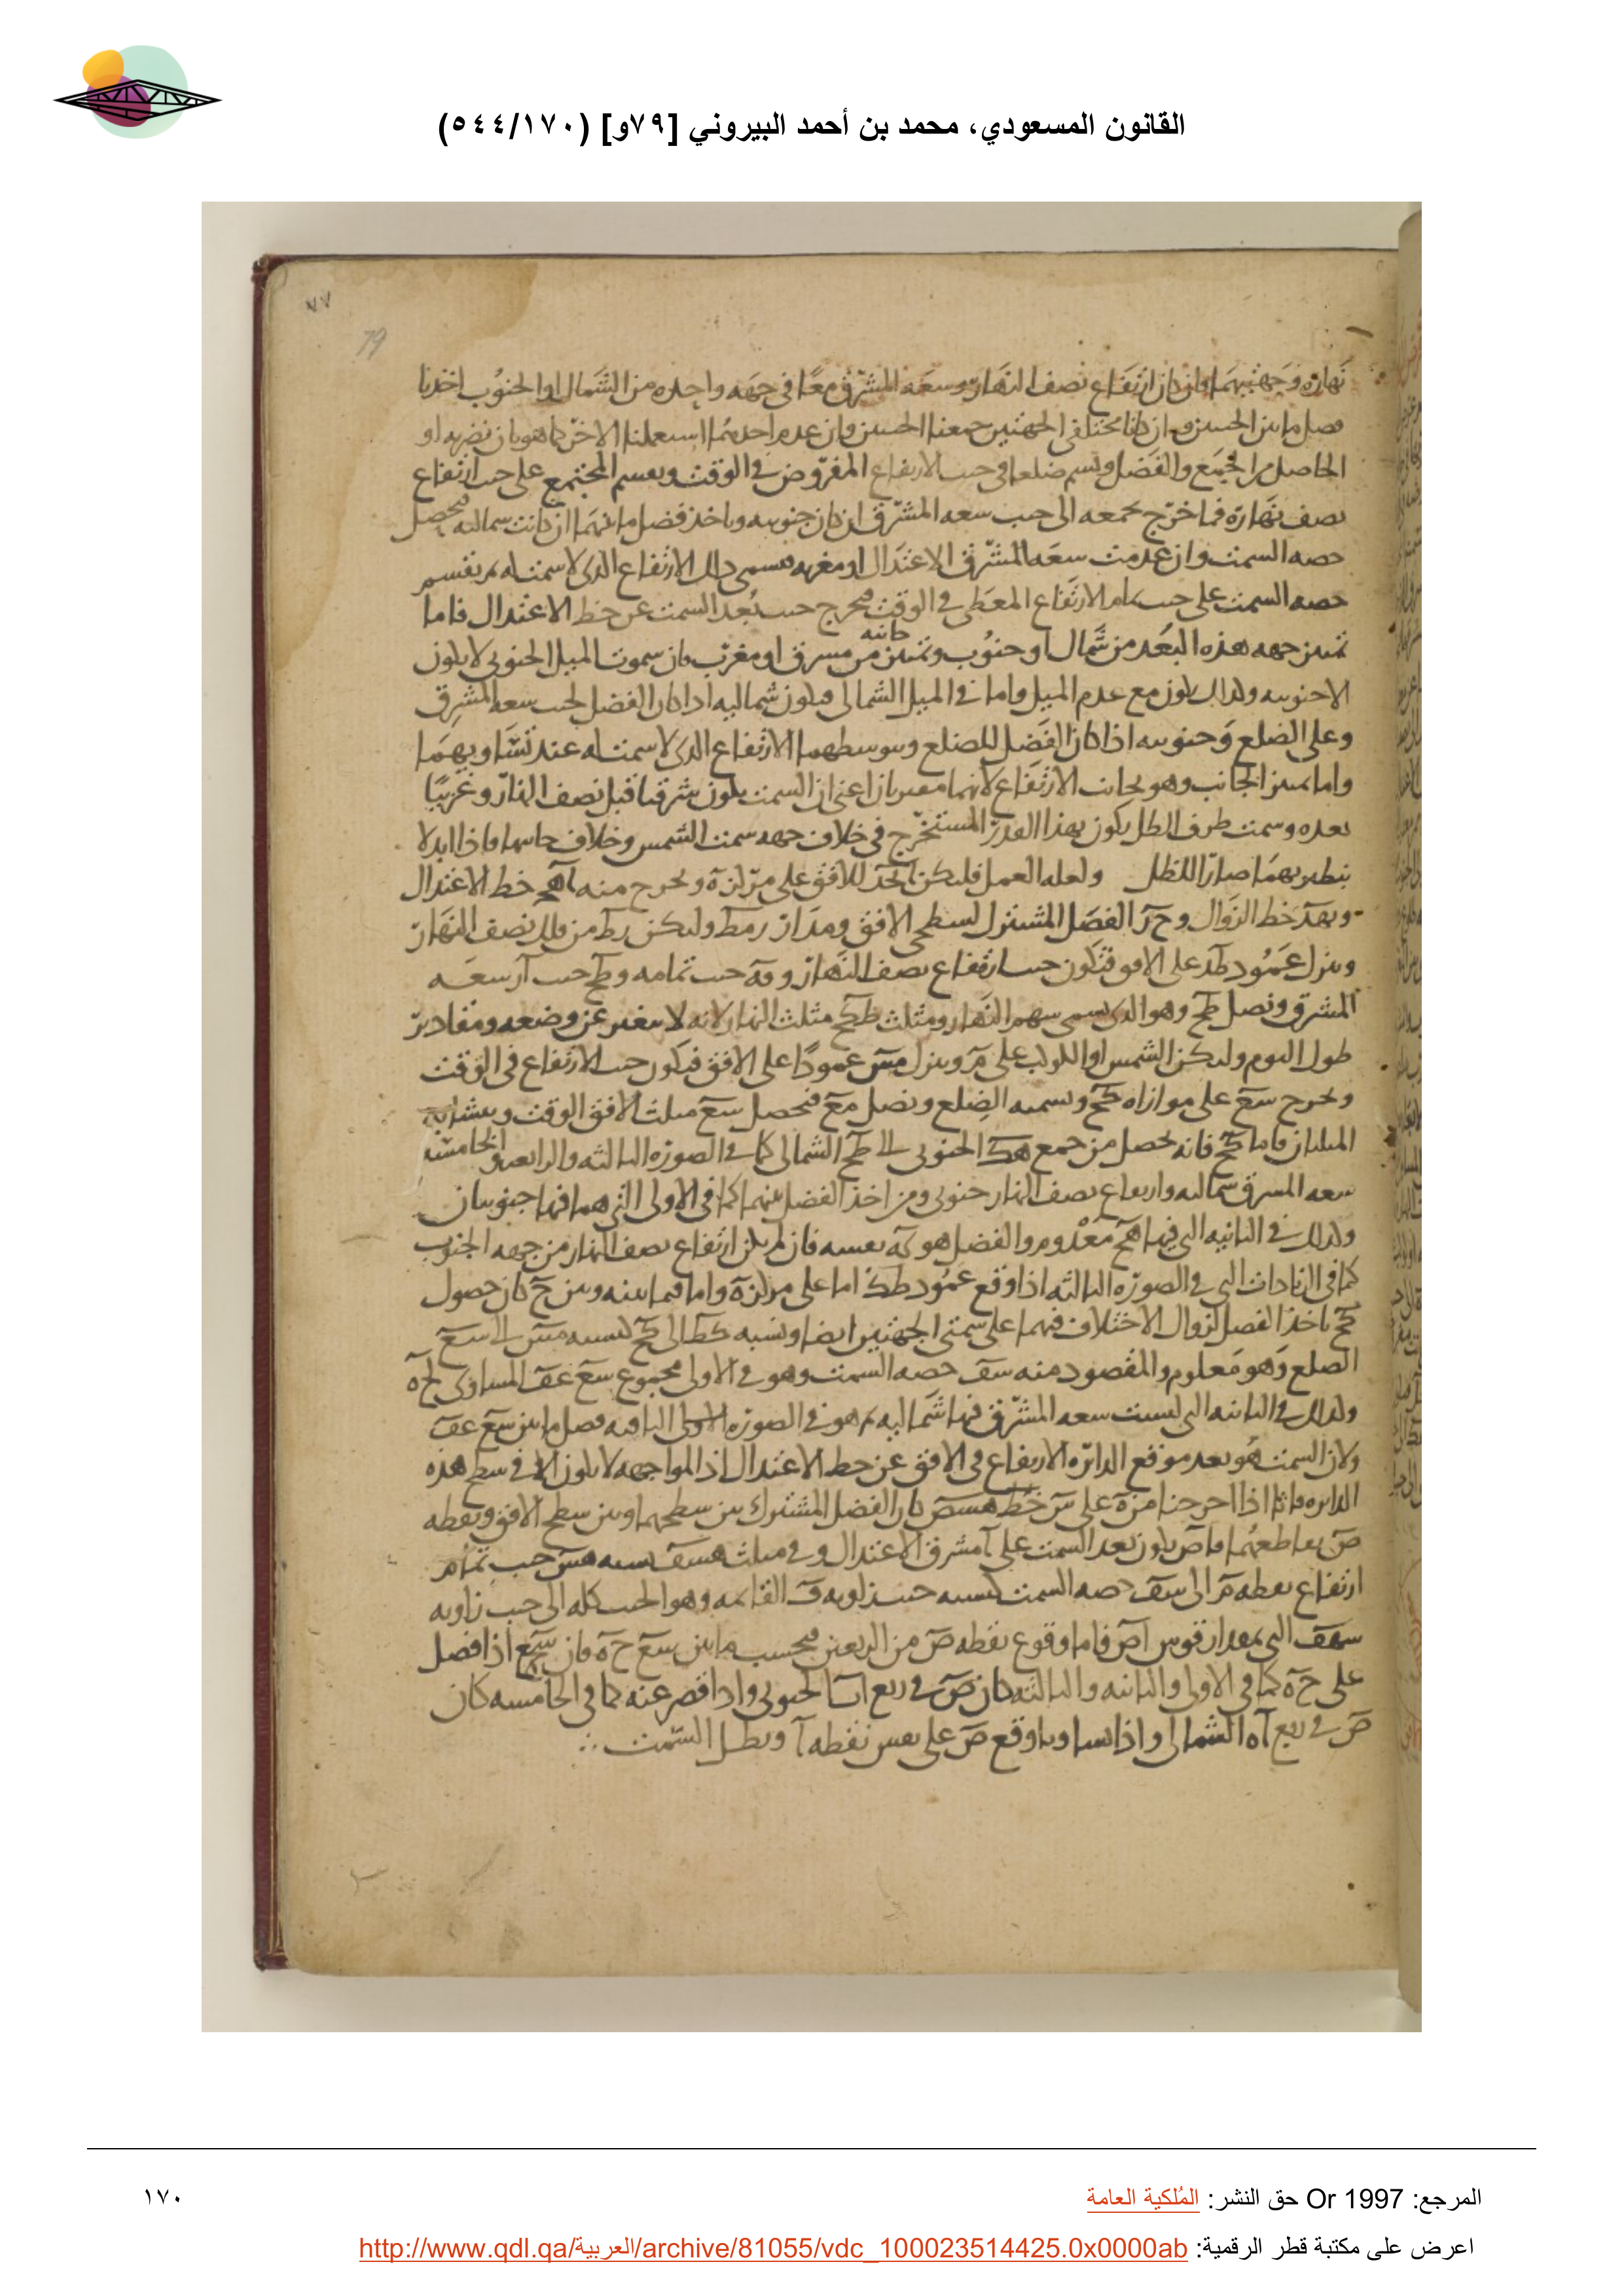 القانون المسعودي، محمد بن أحمد البيروني [٧٩و] (٥٤٤/١٧٠)
٧٧
79
نهاره وجهتيهما فان كان ارتفاع نصف النهار وسعه المشرق معًا في جهه واحده من الشمال او الجنوب اخذنا
فصل ما بين الجيبين وان كانا مختلفي الجهتين جمعنا الجيبين وان عدم احدهما استعملنا الاخر كما هو بان نضربه او
الحاصل من الجمع والفضل ونسم ضلعا في جيب الارتفاع المفروض في الوقت ونقسم المجتمع على جيب ارتفاع
نصف نهاره فما خرج نجمعه الى جيب سعه المشرق ان كان جنوبيه وناخذ فضل ما بينهما ان كانت شماليه فيحصل
حصه السمت وان عدمت سعه المشرق الاعتدال او مغربه فسمي ذلك الارتفاع الذي لا سمت له ثم نقسم
حصه السمت على جيب تمام الارتفاع المعطى في الوقت فيخرج جيب بُعد السمت عن خط الاعتدال فاما
تميز جهه هذه البُعد من شمال او جنوب وتميز جانبه من مشرق او مغرب فان سموت الميل الجنوبي لا يكون
الا جنوبيه وكذلك يكون مع عدم الميل واما في الميل الشمالي فيكون شماليه اذا كان الفضل لجيب سعه المشرق
وعلى الضلع وجنوبيه اذا كان الفضل للضلع ويتوسطهما الارتفاع الذي لا سمت له عند تساويهما
واما تميز الجانب وهو بجانب الارتفاع لانهما مقترنان اعني ان السمت يكون شرقيا قبل نصف النهار وغربيًا
بعده وسمت طرف الظل يكون بهذا القدر المستخرج في خلاف جهه سمت الشمس وخلاف جانبها فاذا ابدلا
بنظيريهما صارا للظل ولعله العمل فليكن ابجد للافق على مركز ه ونخرج منه اهج خط الاعتدال
وبهد خط الزوال وحر الفصل المشترك لسطحي الافق ومدار رمط وليكن ر ط من فلك نصف النهار
وننزل عمود طك على الافق فيكون جيب ارتفاع نصف النهار و جيب تمامه و جيب ار سعه
المشرق ونصل طح وهو الذي يسمى سهم النهار ومثلث طكح مثلث النهار لانه لا يتغير عن وضعه ومقادير
طول اليوم وليكن الشمس او الكوكب على م وننزل مس عمودًا على الافق فيكون جيب الارتفاع في الوقت
ونخرج سع على موازاه كح ونسميه الضلع ونصل مع فيحصل سع مثلث الافق الوقت ويتشابه
المثلثان فاما كح فانه يحصل من جمع هك الجنوبي الى هح الشمالي كما في الصوره الثالثه والرابعه والخامسه
سعه المشرق شماليه وارتفاع نصف النهار جنوبي ومن اخذ الفضل بينهما كما في الاولى التي هما فيها جنوبيان
وكذلك في الثانيه التي فيها هح معدوم والفضل هو كه نفسه فان لم يكن ارتفاع نصف النهار من جهه الجنوب
كما في التي في الصوره الثالثه اذا وقع عمود طك اما على مركز ه واما فيما بينه وبين ح كان حصول
كح باخذ الفضل لزوال الاختلاف فيهما على سمتي الجهتين ايضا ونسبه كط الى كح كنسبه مس الى سع
الضلع وهو معلوم والمقصود منه سف حصه السمت وهو في الاولى مجموع سع عف المساوي لح ه
وكذلك في الثانيه التي ليست سعه المشرق فيها شماليه ثم هو في الصوره الباقيه فصل ما بين سع عف
ولان السمت هو بعد موقع الدائره الارتفاع في الافق عن خط الاعتدال اذ المواجهه لا يكون الا في سطح هذه
الدائره فانا اذا اخرجنا من ه على س خط هسص كان الفصل المشترك بين سطحها وبين سطح الافق ونقطه
ص تقاطعهما فاص يكون بعد السمت على ا مشرق الاعتدال وفي مثلث هسف نسبه هس جيب تمام
ارتفاع نقطه م الى سف حصه السمت كنسبه جيب زاويه ف القائمه وهو الجيب كله الى جيب زاويه
سهف التي بمقدار قوس اص فاما وقوع نقطه ص من الربعين فبحسب ما بين سع ح ه فان سع اذا فضل
على ح ه كما في الاولى والثانيه والثالثه كان ص في ربع اب الجنوبي واذا قصر عنه كما في الخامسه كان
ص في ربع اه الشمالي واذا تساويا وقع ص على نفس نقطه ا وبطل السمت
المرجع: Or 1997 حق النشر: المُلكية العامة
١٧٠
اعرض على مكتبة قطر الرقمية: http://www.qdl.qa/العربية/archive/81055/vdc_100023514425.0x0000ab